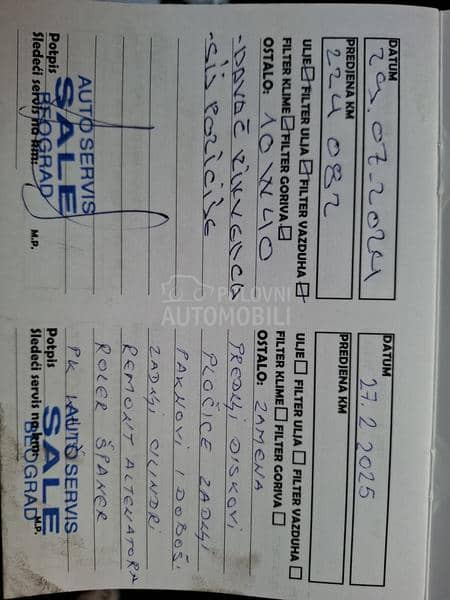 DATUM
29.07.2024
PREDJENA KM
224 082
ULJE FILTER ULJA FILTER VAZDUHA
FILTER KLIME FILTER GORIVA
OSTALO: 10W40
- DAVAČ
- SIJ POZICIJE
Potpis
Sledeći servis na km:
M.P.
AUTO SERVIS
SALE
BEOGRAD
DATUM
27.2 2025
PREDJENA KM
ULJE FILTER ULJA FILTER VAZDUHA
FILTER KLIME FILTER GORIVA
OSTALO: ZAMENA
PREDNJI DISKOVI
PLOČICE ZADNJI
PAKNOVI I DOBOŠI
ZADNJI CILINDRI
REMONT ALTENATORA
ROLER ŠPANER
PK
Potpis
Sledeći servis na km:
M.P.
AUTO SERVIS
SALE
BEOGRAD
POLOVNI
AUTOMOBILI